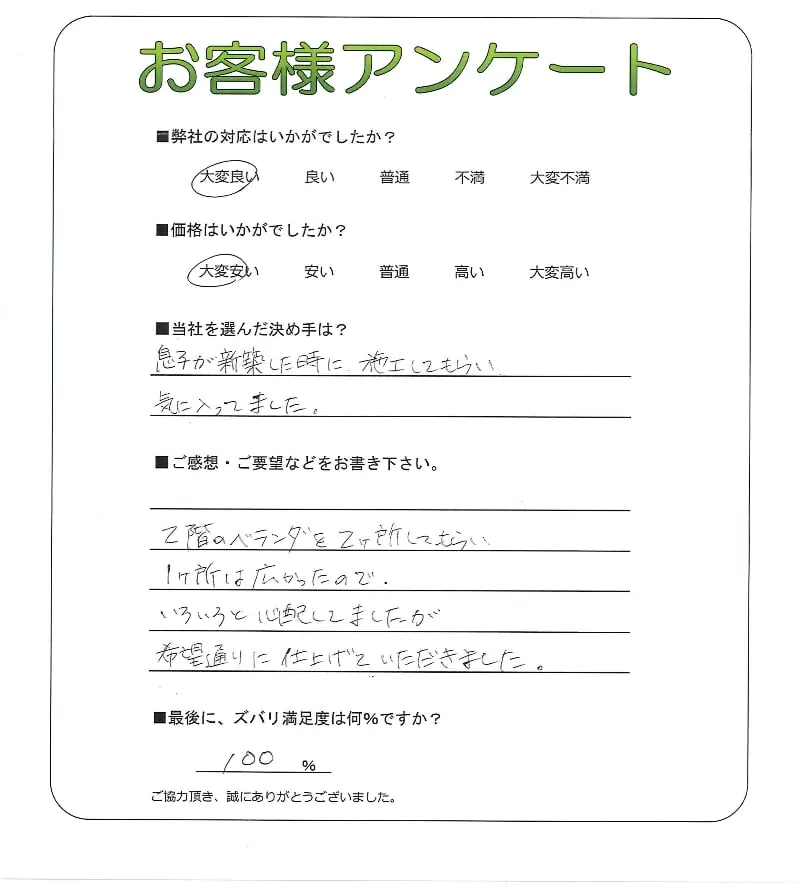 お客様アンケート
■弊社の対応はいかがでしたか？
大変良い 良い 普通 不満 大変不満
■価格はいかがでしたか？
大変安い 安い 普通 高い 大変高い
■当社を選んだ決め手は？
息子が新築した時に、施工してもらい
気に入ってました。
■ご感想・ご要望などをお書き下さい。
2階のベランダを2ヶ所してもらい
1ヶ所は広かったので、
いろいろと心配してましたが
希望通りに仕上げていただきました。
■最後に、ズバリ満足度は何%ですか？
100 %
ご協力頂き、誠にありがとうございました。